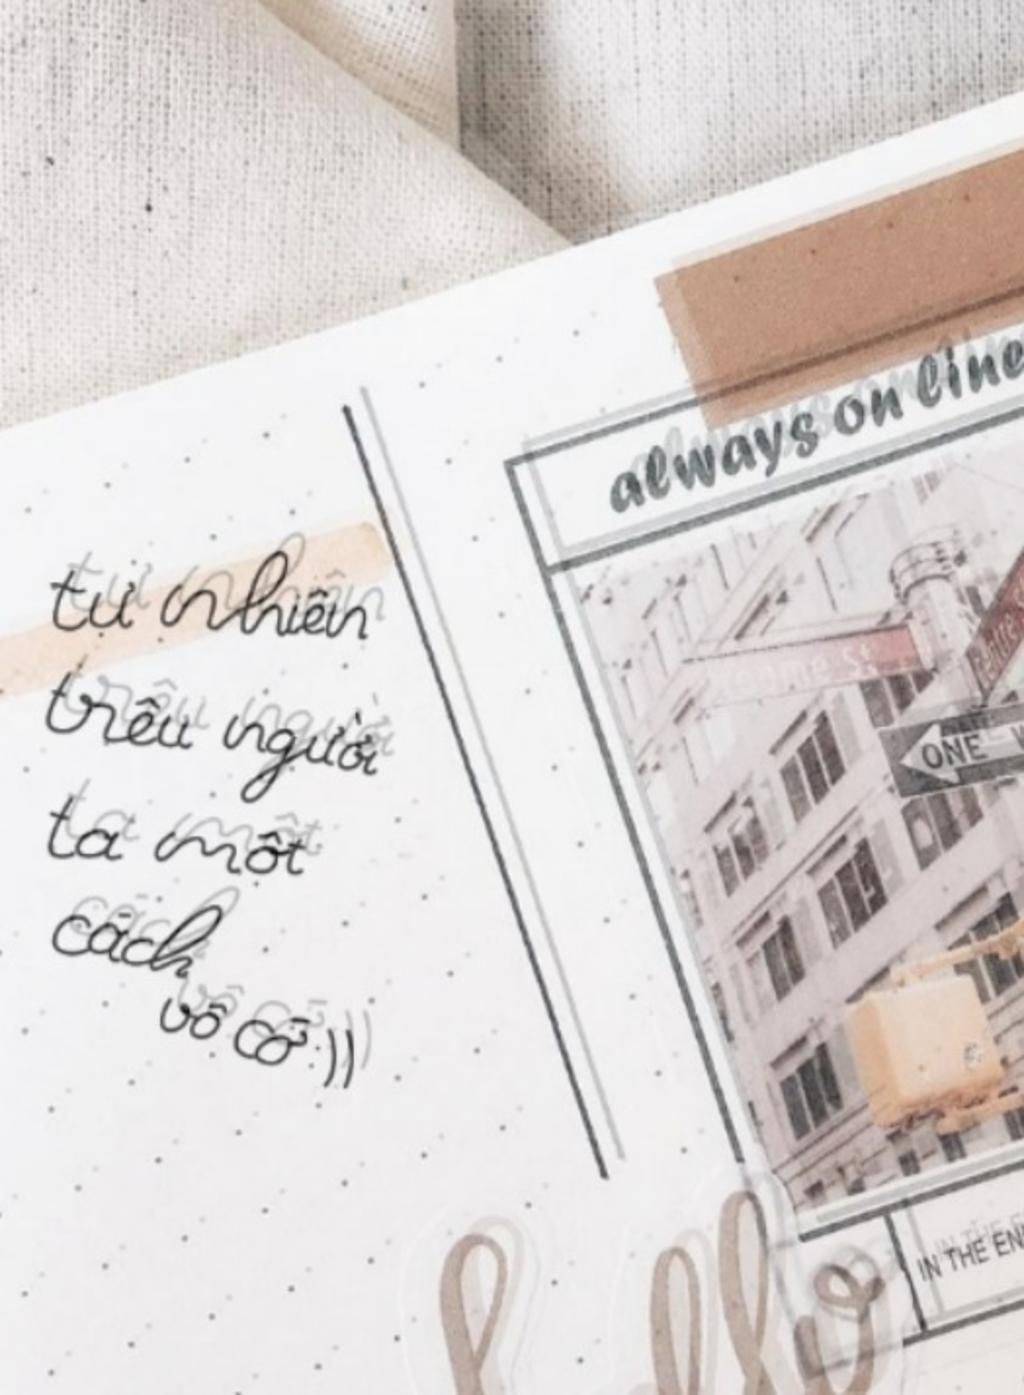 tự nhiên
trêu người
ta một
cách
vô cớ :))
always on line
ONE
hello
IN THE EN